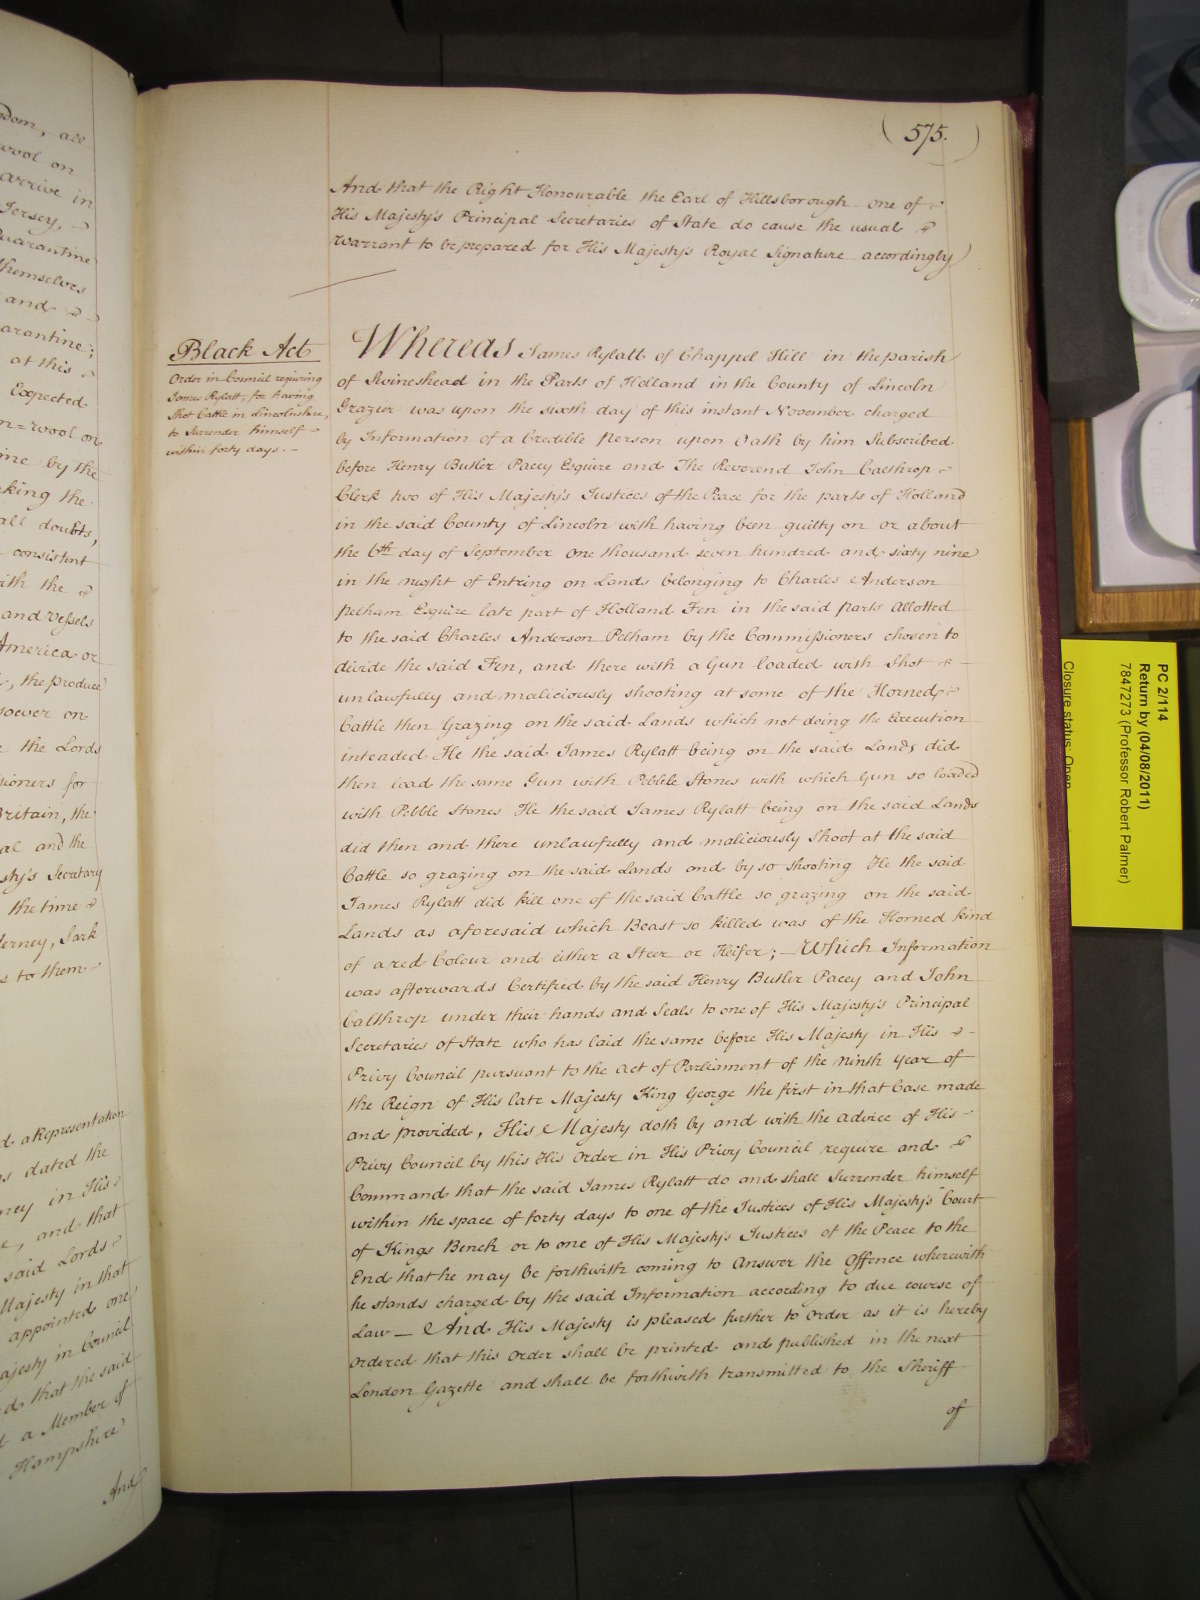 dom, all
wool on
arrive in
Jersey,
Quarantine
themselves
and
arantine;
at this
Expected
n=wool on
ine by the
king the
all doubts,
consistent
ith the
and Vessels
America or
, the produce
soever on
the Lords
sioners for
Britain, the
al and the
sty's Secretary
the time
derney, Sark
s to them
d a Representation
s dated the
ney in His
e, and that
said Lords
Majesty in that
appointed one
ajesty in Council
d that the said
a Member of
Hampshire
And
(575.)
And that the Right Honourable the Earl of Hillsborough one of
His Majesty's Principal Secretaries of State do cause the usual
warrant to be prepared for His Majesty's Royal Signature accordingly
Black Act
Order in Council requiring
James Rylatt, for having
Shot Cattle in Lincolnshire,
to Surrender himself
within forty days. -
Whereas James Rylatt of Chappel Hill in the parish
of Swineshead in the Parts of Holland in the County of Lincoln
Grazier was upon the sixth day of this instant November charged
by Information of a Credible person upon Oath by him Subscribed
before Henry Butler Pacey Esquire and The Reverend John Calthrop
Clerk two of His Majesty's Justices of the Peace for the parts of Holland
in the said County of Lincoln with having been guilty on or about
the 6th day of September one thousand seven hundred and sixty nine
in the night of Entring on Lands belonging to Charles Anderson
pelham Esquire late part of Holland Fen in the said parts Allotted
to the said Charles Anderson Pelham by the Commissioners chosen to
divide the said Fen, and there with a Gun loaded with Shot
unlawfully and maliciously shooting at some of the Horned
Cattle then Grazing on the said Lands which not doing the Execution
intended He the said James Rylatt being on the said Lands did
then load the same Gun with Pebble Stones with which Gun so loaded
with Pebble Stones He the said James Rylatt being on the said Lands
did then and there unlawfully and maliciously Shoot at the said
Cattle so grazing on the said Lands and by so shooting He the said
James Rylatt did kill one of the said Cattle so grazing on the said
Lands as aforesaid which Beast so killed was of the Horned kind
of a red Colour and either a Steer or Heifer; - Which Information
was afterwards Certified by the said Henry Butler Pacey and John
Calthrop under their hands and Seals to one of His Majesty's Principal
Secretaries of State who has laid the same before His Majesty in His
Privy Council pursuant to the Act of Parliament of the ninth year of
the Reign of His late Majesty King George the first in that Case made
and provided, His Majesty doth by and with the advice of His
Privy Council by this His Order in His Privy Council require and
Command that the said James Rylatt do and shall Surrender himself
within the space of forty days to one of the Justices of His Majesty's Court
of Kings Bench or to one of His Majesty's Justices of the Peace to the
End that he may be forthwith coming to Answer the Offence wherewith
he stands charged by the said Information according to due course of
Law - And His Majesty is pleased further to Order as it is hereby
ordered that this Order shall be printed and published in the next
London Gazette and shall be forthwith transmitted to the Sheriff
of
PC 2/114
Return by (04/08/2011)
7847273 (Professor Robert Palmer)
Closure status: Open